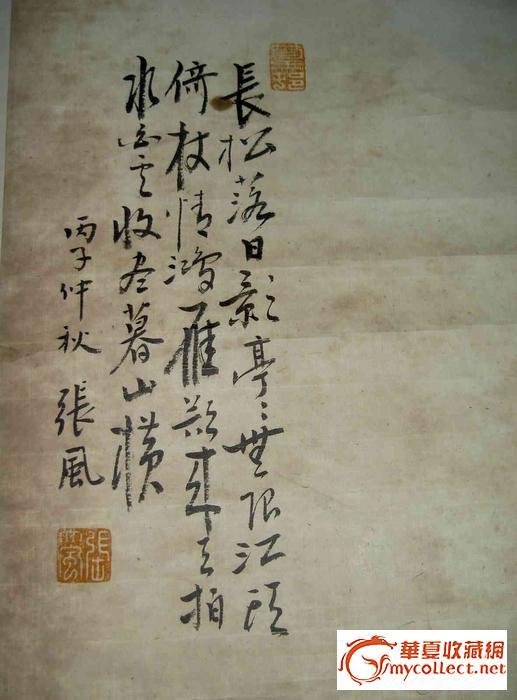 長松落日影亭〻無限江頭
倚杖情鴻雁欲來天拍
水白雲收尽暮山橫
丙子仲秋 張風
華夏收藏網
mycollect.net